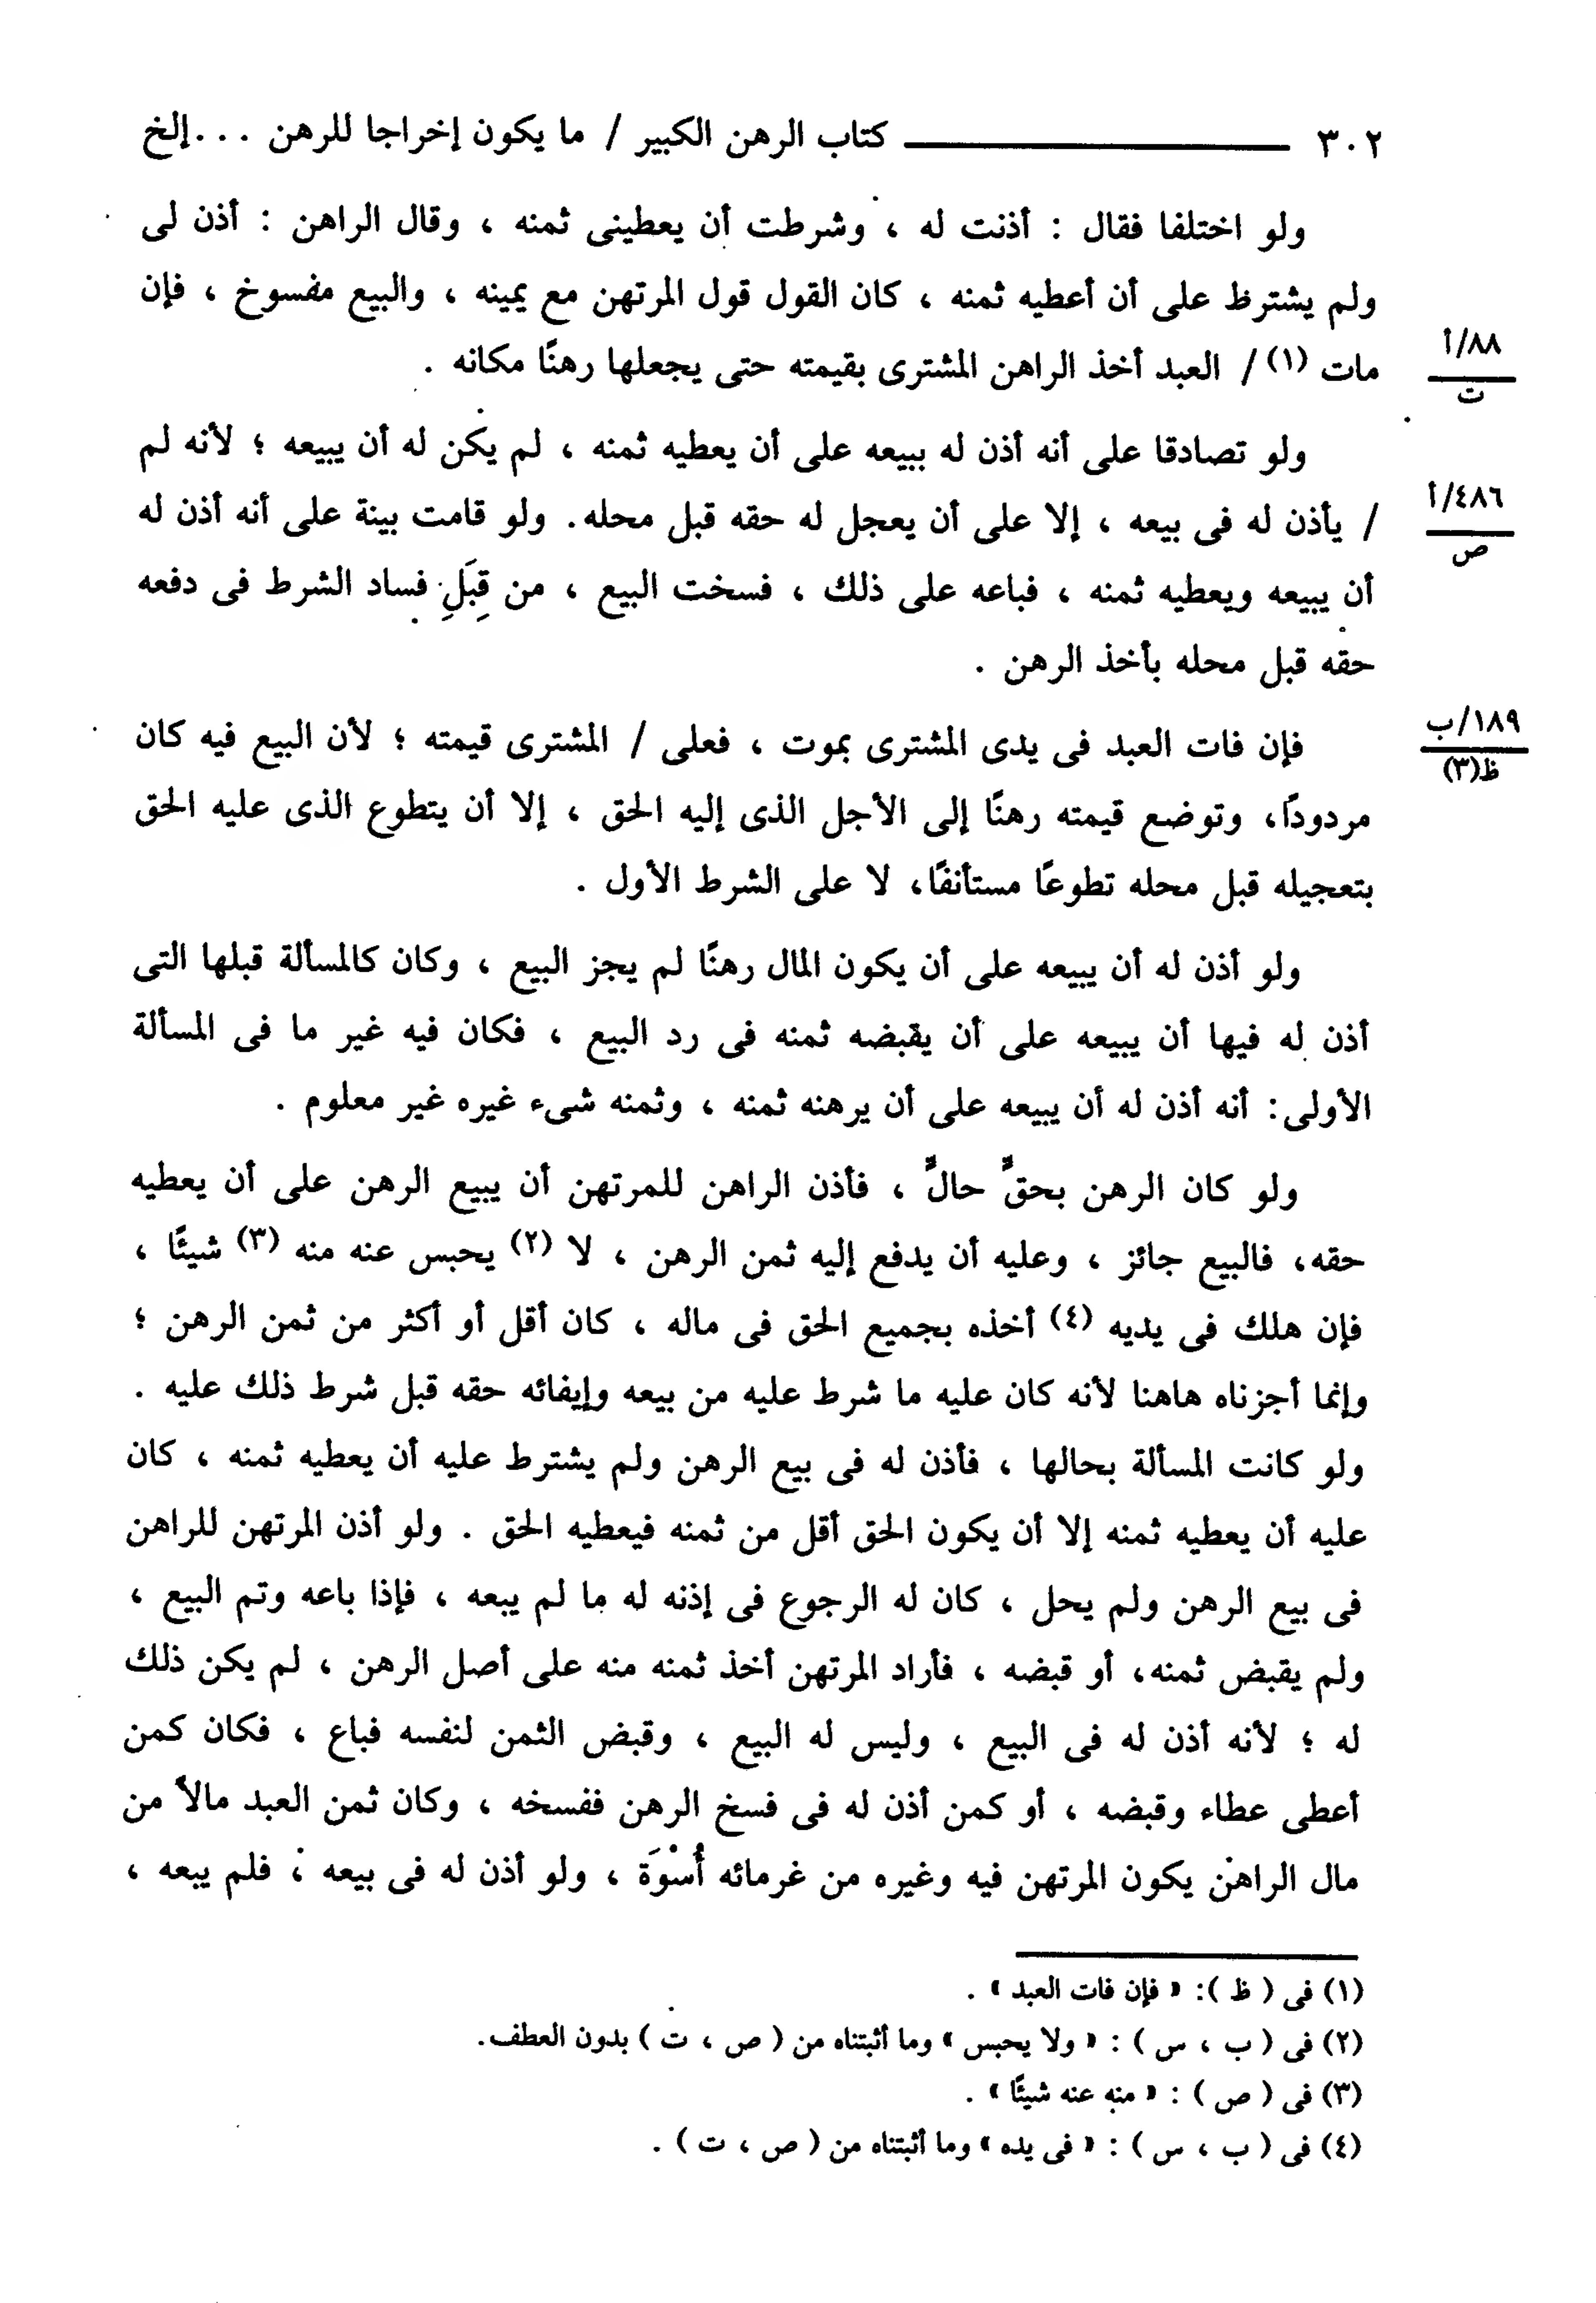 ٣٠٢ كتاب الرهن الكبير / ما يكون إخراجا للرهن ... إلخ
ولو اختلفا فقال : أذنت له ، وشرطت أن يعطينى ثمنه ، وقال الراهن : أذن لى
ولم يشترظ على أن أعطيه ثمنه ، كان القول قول المرتهن مع يمينه ، والبيع مفسوخ ، فإن
مات (١) / العبد أخذ الراهن المشترى بقيمته حتى يجعلها رهنًا مكانه .
٨٨/أ
ت
ولو تصادقا على أنه أذن له ببيعه على أن يعطيه ثمنه ، لم يكن له أن يبيعه ؛ لأنه لم
/ يأذن له فى بيعه ، إلا على أن يعجل له حقه قبل محله. ولو قامت بينة على أنه أذن له
٤٨٦/أ
ص
أن يبيعه ويعطيه ثمنه ، فباعه على ذلك ، فسخت البيع ، من قِبَلِ فساد الشرط فى دفعه
حقه قبل محله بأخذ الرهن .
فإن فات العبد فى يدى المشترى بموت ، فعلى / المشترى قيمته ؛ لأن البيع فيه كان
١٨٩/ب
ظ(٣)
مردودًا، وتوضع قيمته رهنًا إلى الأجل الذى إليه الحق ، إلا أن يتطوع الذى عليه الحق
بتعجيله قبل محله تطوعًا مستأنفًا، لا على الشرط الأول .
ولو أذن له أن يبيعه على أن يكون المال رهنًا لم يجز البيع ، وكان كالمسألة قبلها التى
أذن له فيها أن يبيعه على أن يقبضه ثمنه فى رد البيع ، فكان فيه غير ما فى المسألة
الأولى: أنه أذن له أن يبيعه على أن يرهنه ثمنه ، وثمنه شىء غيره غير معلوم .
ولو كان الرهن بحقٍّ حالٍّ ، فأذن الراهن للمرتهن أن يبيع الرهن على أن يعطيه
حقه، فالبيع جائز ، وعليه أن يدفع إليه ثمن الرهن ، لا (٢) يحبس عنه منه (٣) شيئًا ،
فإن هلك فى يديه (٤) أخذه بجميع الحق فى ماله ، كان أقل أو أكثر من ثمن الرهن ؛
وإنما أجزناه هاهنا لأنه كان عليه ما شرط عليه من بيعه وإيفائه حقه قبل شرط ذلك عليه .
ولو كانت المسألة بحالها ، فأذن له فى بيع الرهن ولم يشترط عليه أن يعطيه ثمنه ، كان
عليه أن يعطيه ثمنه إلا أن يكون الحق أقل من ثمنه فيعطيه الحق . ولو أذن المرتهن للراهن
فى بيع الرهن ولم يحل ، كان له الرجوع فى إذنه له ما لم يبعه ، فإذا باعه وتم البيع ،
ولم يقبض ثمنه، أو قبضه ، فأراد المرتهن أخذ ثمنه منه على أصل الرهن ، لم يكن ذلك
له ؛ لأنه أذن له فى البيع ، وليس له البيع ، وقبض الثمن لنفسه فباع ، فكان كمن
أعطى عطاء وقبضه ، أو كمن أذن له فى فسخ الرهن ففسخه ، وكان ثمن العبد مالاً من
مال الراهن يكون المرتهن فيه وغيره من غرمائه أُسْوَة ، ولو أذن له فى بيعه ، فلم يبعه ،
(١) فى ( ظ ): « فإن فات العبد » .
(٢) فى ( ب ، س ) : « ولا يحبس » وما أثبتناه من ( ص ، ت ) بدون العطف.
(٣) فى ( ص ) : « منه عنه شيئًا » .
(٤) فى ( ب ، س ) : « فى يده » وما أثبتناه من ( ص ، ت ) .